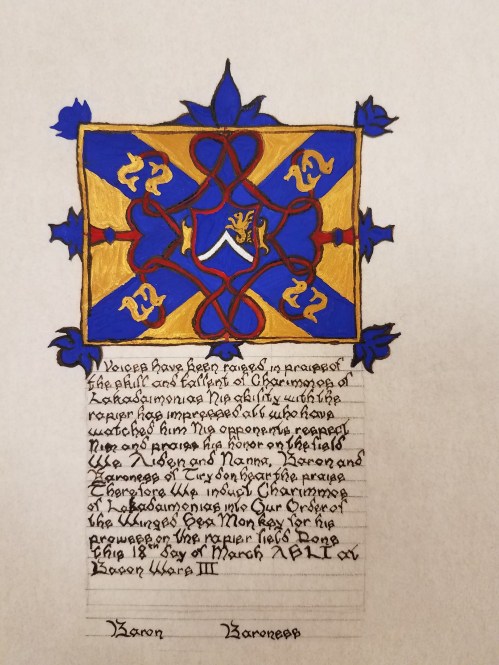 Voices have been raised in praise of
the skill and tallent of Charimmos of
Lakadaimonias His ability with the
rapier has impressed all who have
watched him His opponents respect
Him and praise his honor on the field
We Aiden and Nanna, Baron and
Baroness of Tir ydon hear the praise
Therefore We induct Charimmos
of Lakadaimonias into Our Order of
the Winged Sea Monkey for his
prowess on the rapier field Done
this 18th day of March ASLI at
Bacon Wars III
Baron Baroness